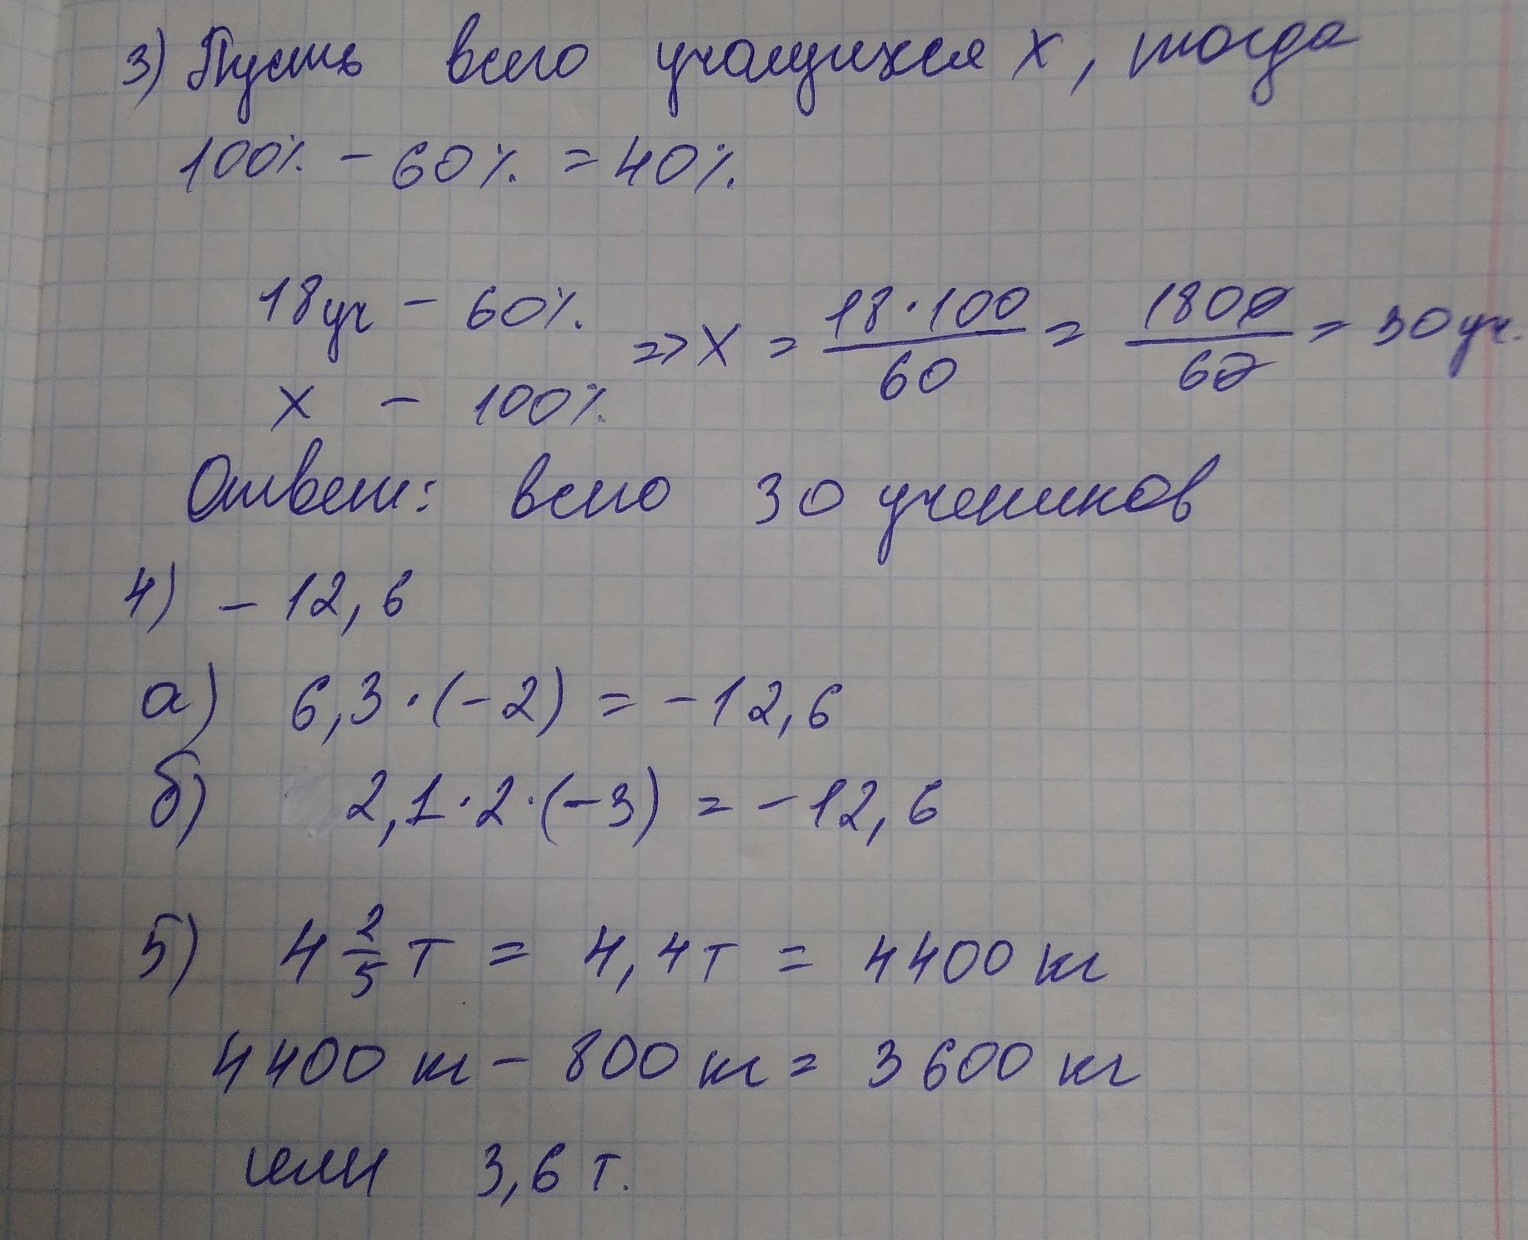 3) Пусть всего учащихся x, тогда
100% - 60% = 40%.
18 уч - 60%.
x - 100%.
=> x = 18·100/60 = 1800/60 = 30 уч.
Ответ: всего 30 учеников
4) - 12,6
а) 6,3·(-2) = -12,6
б) 2,1·2·(-3) = -12,6
5) 4 2/5 т = 4,4 т = 4400 кг
4400 кг - 800 кг = 3600 кг
или 3,6 т.